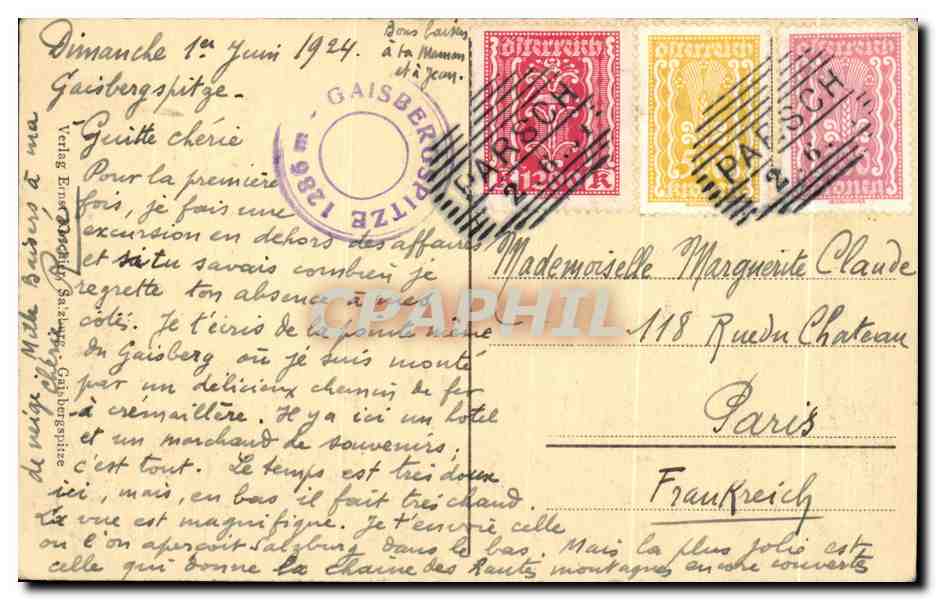 Dimanche 1er Juin 1924.
Gaisbergspitze-
Bons baisers
à ta Maman
et à Jean.
Guitte chérie
Pour la première
fois, je fais une
excursion en dehors des affaires
et si tu savais combien je
regrette ton absence à mes
côtés. Je t'écris de la pointe même
du Gaisberg où je suis monté
par un délicieux chemin de fer
à crémaillère. Il y a ici un hotel
et un marchand de souvenirs,
c'est tout. Le temps est très doux
ici, mais, en bas il fait très chaud.
La vue est magnifique. Je t'envoie celle
où l'on aperçoit Salzburg dans le bas. Mais la plus jolie est
celle qui donne la chaine des hautes montagnes encore couvertes
de neige Mille Baisers à ma
Chérie
René
Verlag Ernst Salzburg. Gaisbergspitze
GAISBERGSPITZE 1286 m.
österreich
Kronen
österreich
Kronen
österreich
Kronen
PARSCH
2 6
PARSCH
2 6
CPAPHIL
Mademoiselle Marguerite Claude
118 Rue du Chateau
Paris
Frankreich